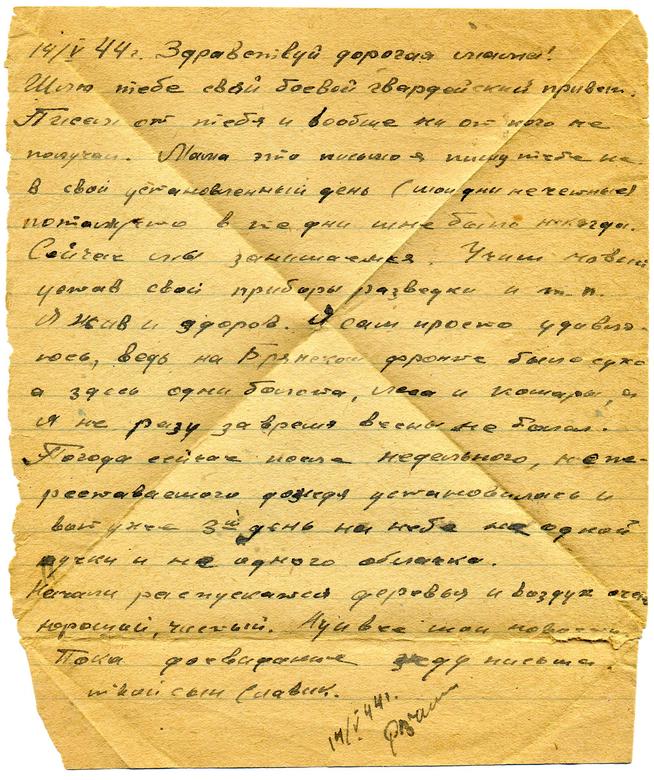 14/V 44г. Здравствуй дорогая мама!
Шлю тебе свой боевой гвардейский привет.
Писем от тебя и вообще ни от кого не
получал. Мама это письмо я пишу тебе не
в свой установленный день (мои дни нечетные)
потому что в те дни мне было некогда.
Сейчас мы занимаемся. Учим новый
устав свой приборы разведки и т.п.
Я жив и здоров. Я сам просто удивля-
юсь, ведь на Брянском фронте было сухо
а здесь одни болота, леса и комары, а
я не разу за время весны не болел.
Погода сейчас после недельного, непе-
реставаемого дождя установилась и
вот уже 3ий день на небе не одной
тучки и не одного облачка.
Начали распускатся деревья и воздух очень
хороший, чистый. Ну и все мои новости.
Пока досвидание жду письма.
твой сын Славик.
14/V 44г.